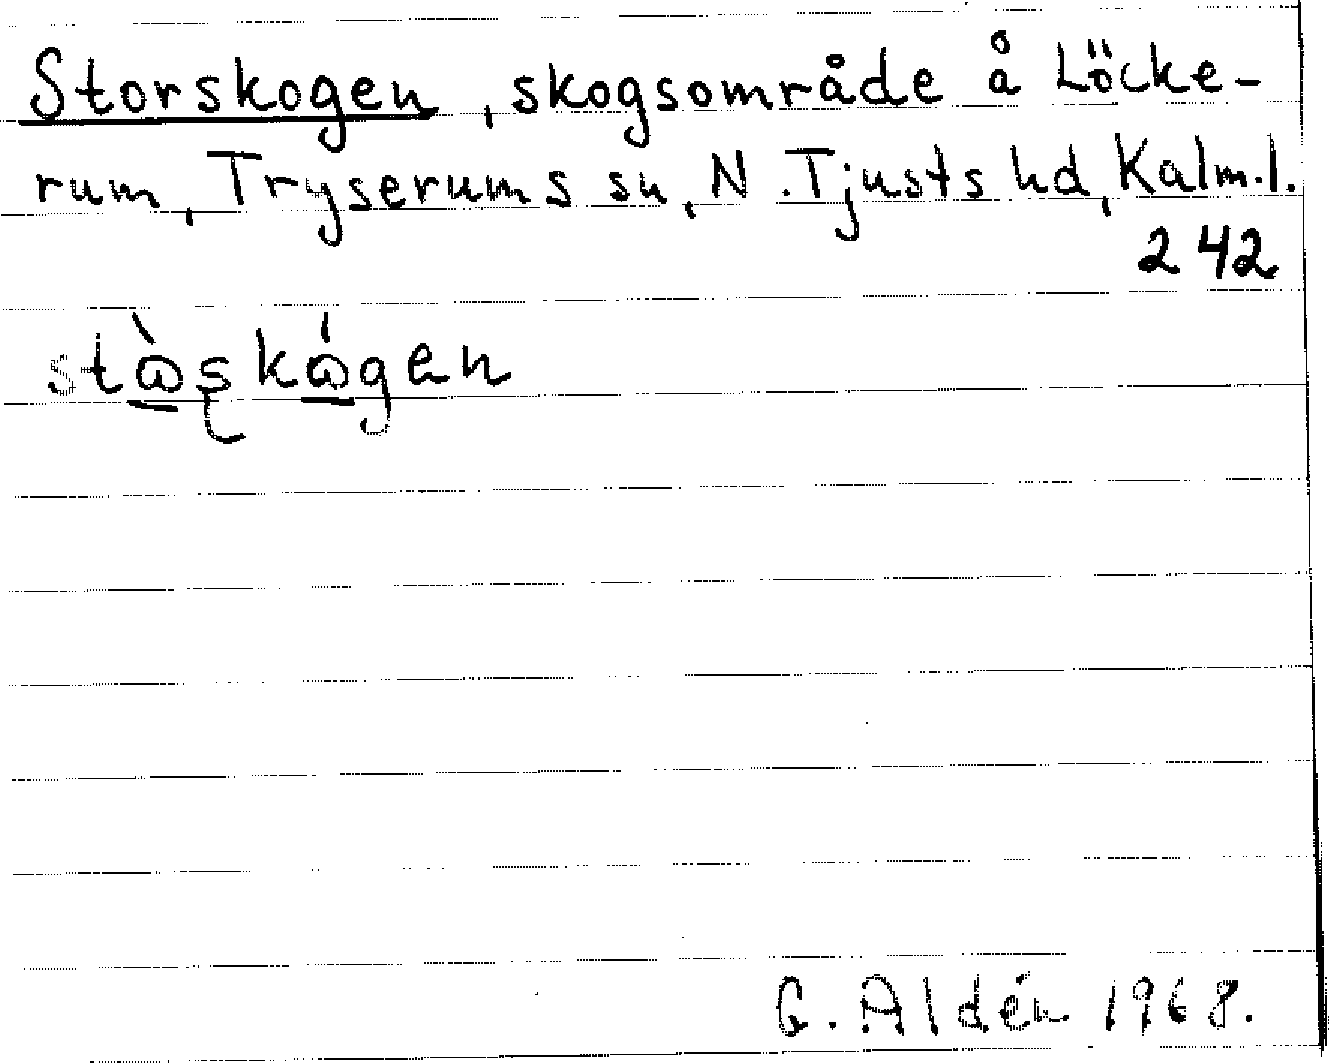 Storskogen, skogsområde å Löcke-
rum, Tryserums sn, N. Tjusts hd, Kalm.l.
242
stὼ̲ʂkώ̲gen
G. Aldén 1968.